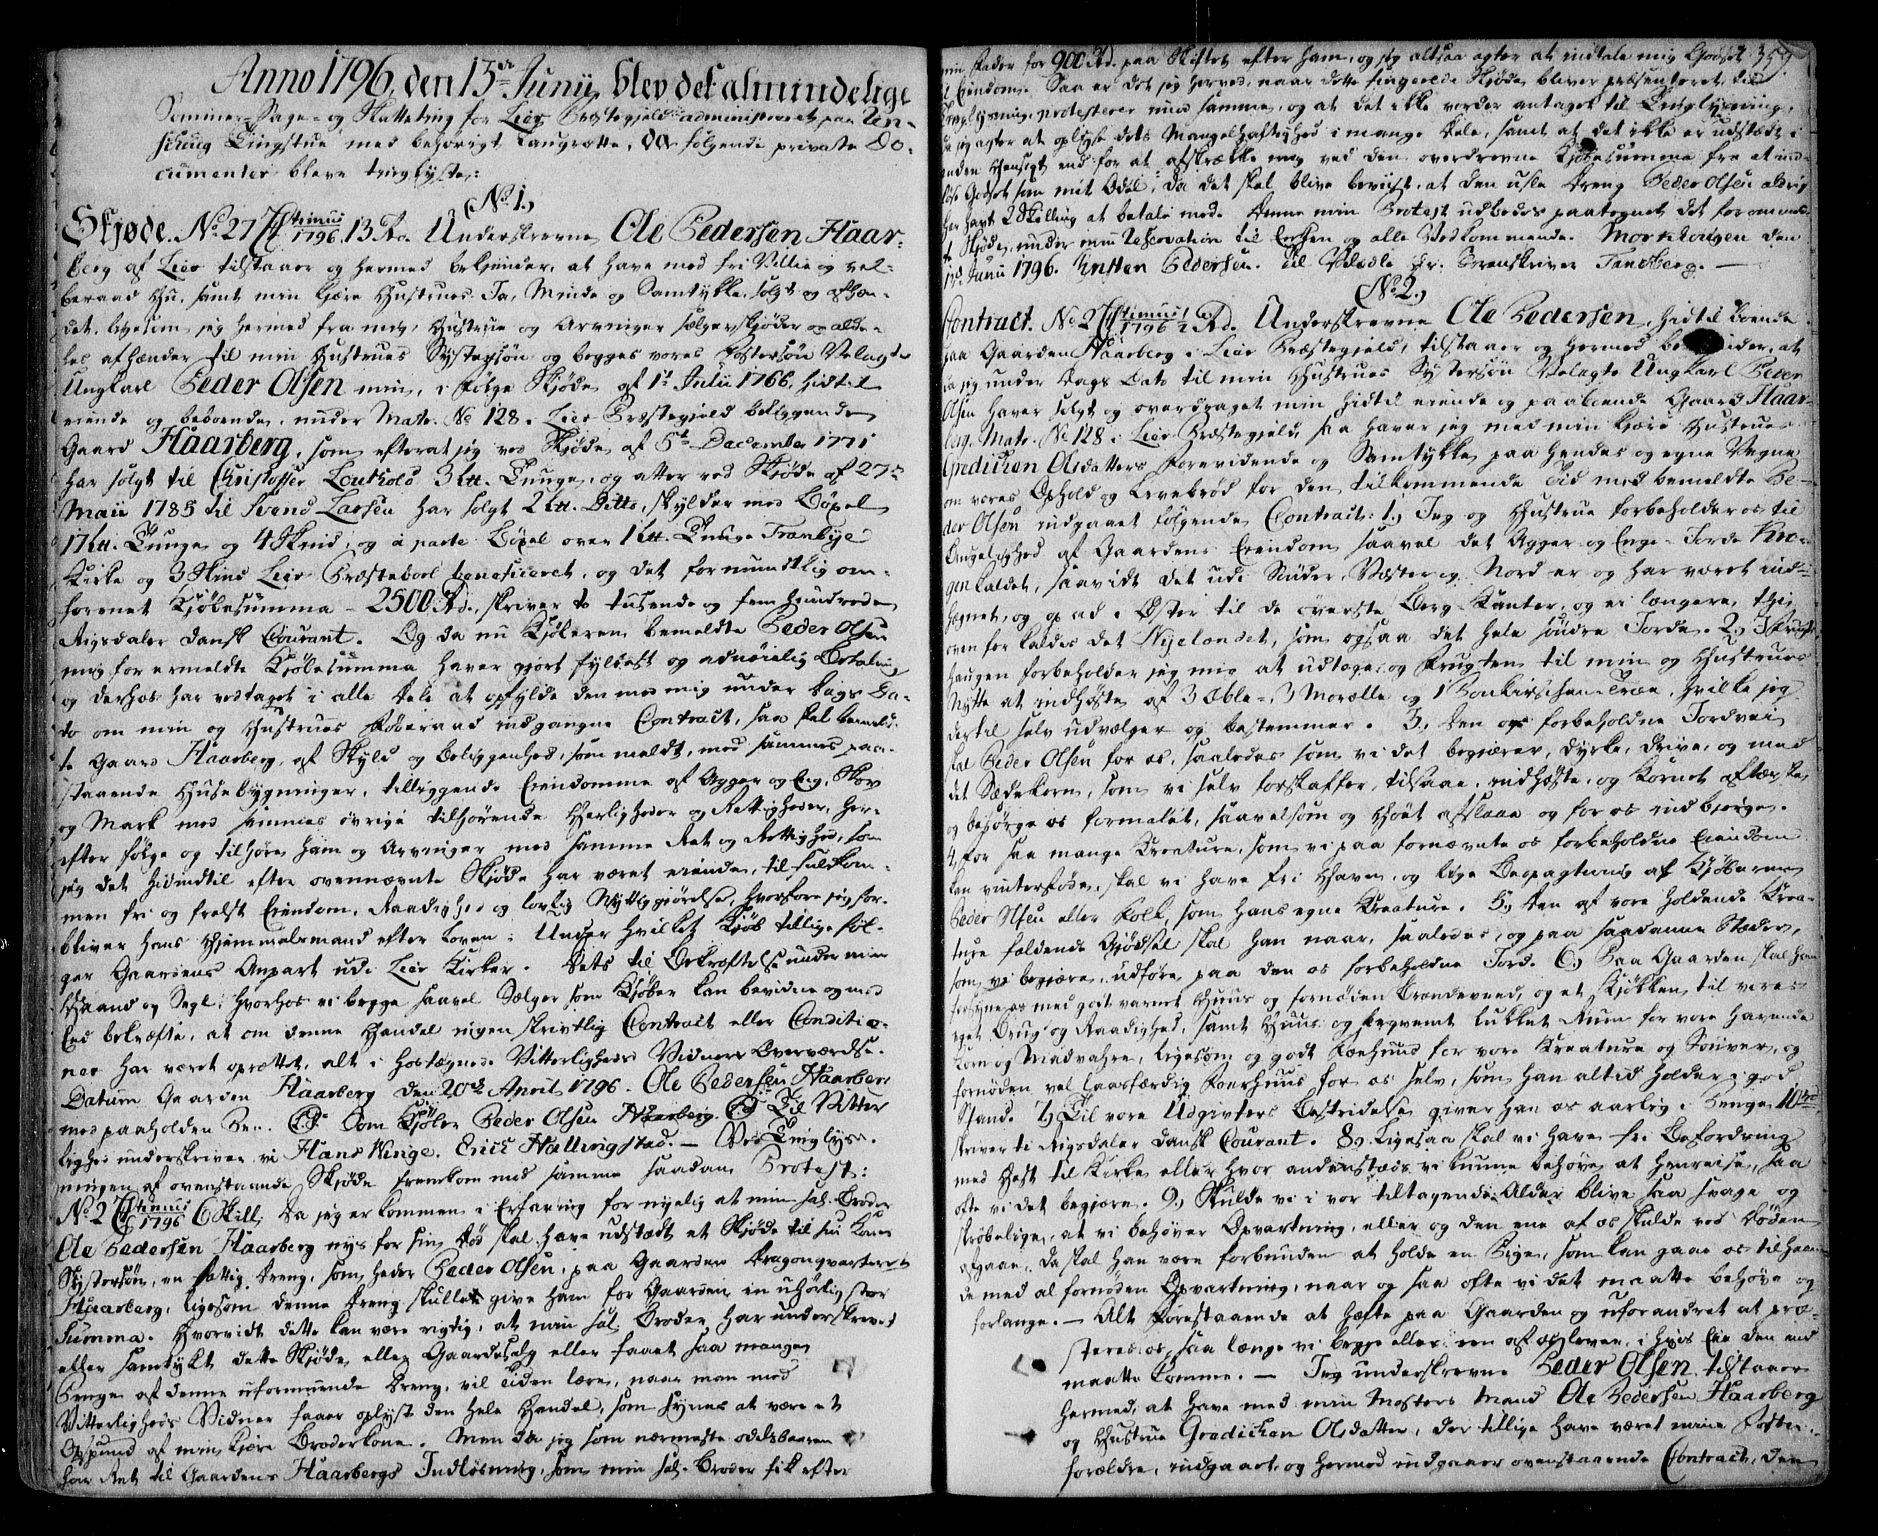 Anno 1796, den 15de Junij, blev det almindelige
Sommer- Sage- og Skatteting for Lier Præstegjeld administreret paa Een-
schiug Tingstue med behørigt Laugrette, da følgende private Do-
cumenter bleve tinglyste:
(No. 1.)
Skjøde. No. 27 1796. 13 Rd. Underskrevne Ole Pedersen Haar-
berg af Lier tilstaaer og hermed bekjender, at have med fri Villie og vel-
beraad Hu, samt min kjære Hustrues Ja, Minde og Samtykke solgt og afhæn-
det, ligesom jeg hermed fra mig, Hustrue og Arvinger sælger, skjøder og alde-
les afhænder til min Hustrues Søstersøn og begges vores Fostersøn Velagte
Ungkarl Peder Olsen min, i følge Skjøde af 1te Julii 1766, hidtil
eiende og beboende, under Matr. No. 128 i Lier Præstegjeld beliggende
Gaard Haarberg, som efterat jeg ved Skjøde af 5te December 1771
har solgt til Christoffer 3 Ltt. Tunge, og atter ved Skjøde af 27de
Maii 1785 til Svend Larsen har solgt 2 Lt. Ditto, skylder med Bøxel
17 Ltt. Tunge og 4 Skind, og à parte Bøxel over 1 Ltt. Tunge Tranbye
Kirke og 3 Skind Lier Præstebord beneficeret, og det for mundtlig om-
forenet Kjøbesumma 2500 Rd., skriver to tusende og fem hundrede
Rigsdaler dansk Courant. Og da nu Kjøberen bemeldte Peder Olsen
mig for ermeldte Kjøbesumma haver gjort fyldest og adnøielig Betaling
og derhos har vedtaget i alle Dele at opfylde den med mig under Dags Da-
to om min og Hustrues Føderaad indgangne Contract, saa skal bemeld-
te Gaard Haarberg, af Skyld og Beliggenhed, som meldt, med sammes paa-
staaende Huusebygninger, tilliggende Eiendomme af Agger og Eng, Skov
og Mark med sammes øvrige tilhørende Herligheder og Rettigheder, her-
efter følge og tilhøre ham og Arvinger med samme Ret og Rettighed, som
jeg det hidindtil efter ovennævnte Skjøde har været eiende, til fulkom-
men fri og frelst Eiendom, Raadighed og lovlig Nyttiggjørelse, hvorfore jeg for-
bliver hans Hjemmelsmand efter Loven: Under hvilket Kjøb tillige føl-
ger Gaardens Anpart udi Lier Kirker. Dets til Bekræftelse under min
Haand og Segl, hvorhos vi begge saavel Sælger som Kjøber kan bevidne og med
Eed bekræfte, at om denne Handel ingen skrivtlig Contract eller Conditio-
ner har været oprettet, alt i hostegnede Vitterligheds Vidners Overværelse.
Datum Gaarden Haarberg den 20de April 1796. Ole Pedersen Haarberg
med paaholden Pen. (L.S.) Som Kjøber Peder Olsen Haarberg (L.S.) Til Vitter-
lighed underskriver vi Hans Winge. Erich Hallingstad. — Ved Tinglys-
ningen af ovenstaaende Skjøde fremkom mod samme saadan Protest:
No. 2 1796 6 Skill. Da jeg er kommen i Erfaring for nyelig at min sal. Broder
Ole Pedersen Haarberg nys for sin Død skal have udstædt et Skjøde til sin Kones
Søstersøn, en fattig Dreng, som heder Peder Olsen, paa Gaarden Dragonqvarteret
Haarberg, ligesom denne Dreng skulle give ham for Gaarden en uhørlig stor
Summa. Hvorvidt dette kan være rigtig, at min sal. Broder har underskrevet
eller samtykt dette Skjøde, eller Gaardesalg eller faaet saa mange
Penge af denne uformuende Dreng, vil Tiden lære, naar man med
Vitterligheds Vidner faaer oplyst den hele Handel, som synes at være et
Opspund af min kjære Broderkone. Men da jeg som nærmeste oddelsbaaren
har Ret til Gaardens Haarbergs Indløsning, som min sal. Broder fik efter
359.
min Fader for 900 Rd. paa Skiftet efter ham, og jeg altsaa agter at indtale mig Godset
til Eiendom. Saa er det jeg herved, naar dette fingerede Skjøde bliver præsenteret til
Tinglysning, protesterer mod samme, og at det ikke vorder antaget til Tinglysning,
da jeg agter at oplyse dets Mangelhaftighed i mange Dele, samt at det ikke er udstædt i
anden Hensigt end for at afskrække mig ved den overdrevne Kjøbesumma fra at ind-
løse Godset som mit Odel; da det skal blive beviist, at den usle Dreng Peder Olsen aldrig
har havt 2 Skilling at betale med. Denne min Protest udbedes paategnet det foromeld-
te Skjøde, under min Reservation til Enhver og alle Vedkommende. den
Junii 1796. Pedersen. Til Velædle Hr. Sorenskriver Tandberg. —
(No. 2.)
Contract. No. 2 1796 1/2 Rd. Underskrevne Ole Pedersen, hidtil boende
paa Gaarden Haarberg i Lier Præstegjeld, tilstaaer og hermed bekjender, at
da jeg under Dags Dato til min Hustrues Søstersøn Velagte Ungkarl Peder
Olsen haver solgt og overdraget min hidtil eiende og paaboende Gaard Haar-
berg Matr. No. 128 i Lier Præstegjeld, saa haver jeg med min kjære Hustrue
Gredichen Olsdatters Forevidende og Samtykke paa hendes og egne Vegne
om vores Ophold og Levebrød for den tilkommende Tid med bemeldte Pe-
der Olsen indgaaet følgende Contract: 1.) Jeg og Hustrue forbeholder os til
Brugelighed af Gaardens Eiendom saavel det Agger og Enge- Jorde Kro-
gen kaldet, saavidt det udi Sønder, Vester og Nord er og har været ind-
hegnet, og op ad i Øster til de øverste Berg-Kanter, og ei længere, thi
oven for kaldes det Nyelandet, som ogsaa det hele søndre Jorde. 2.) I Frugt-
haugen forbeholder jeg mig at udtage og Frugten til min og Hustrues
Nytte at indhøste af 3 Æble-, 3 Morælle og 1 Bonkirschen-Træe, hvilke jeg
dertil selv udvælger og bestemmer. 3.) Den os forbeholdne Jordvei
skal Peder Olsen for os, saaledes som vi det begjærer, dyrke, drive, og med
det Sædekorn, som vi selv forskaffer, tilsaae, indhøste, og Kornet aftærske
og besørge os formalet, saavelsom og Høet afslaae og for os indbjerge.
4.) For saa mange Kreature, som vi paa fornævnte os forbeholdne Eiendom
kan vinterføde, skal vi have fri Havn, og lige Opagtning af Kjøberen
Peder Olsen eller Folk, som hans egne Kreature. 5.) Den af vore holdende Krea-
ture faldende Gjødsel skal han naar, saaledes, og paa saadanne Stæder,
som vi begjære, udføre paa den os forbeholdne Jord. 6.) Paa Gaarden skal han
forsyne os med godt varmt Huus og fornøden Brændeveed, og et Kjøkken til vores
eget Brug og Raadighed, samt Huus og beqvemt lukket Rum for vore havende
Korn og Madvahre, ligesom og godt Fæehuus for vore Kreature og Sviner, og
fornøden vel laasfærdig Foerhuus for os selv, som han altid holder i god
Stand. 7.) Til vore Udgivters Bestridelse giver han os aarlig i Penge 10 Rd.
skriver ti Rigsdaler dansk Courant. 8.) Ligesaa skal vi have fri Befordring
med Hest til Kirke eller hvor andenstæds vi kunne behøve at henreise, saa
ofte vi det begjære. 9.) Skulde vi i vor tiltagende Alder blive saa svage og
skrøbelige, at vi behøver Opvartning, eller og den ene af os skulde ved Døden
afgaae, da skal han være forbunden at holde en Pige, som kan gaae os tilhaan-
de med al fornøden Opvartning, naar og saa ofte vi det maatte behøve og
forlange. — Alt Forestaaende at hæfte paa Gaarden og uforandret at præ-
steres os, saa længe vi begge eller een af os lever, i hvis Eie den end
maatte komme. — Jeg underskrevne Peder Olsen tilstaaer
hermed, at have med min Mosters Mand Ole Pedersen Haarberg
og Hustrue Gredichen Olsdatter, der tillige have været mine Foster-
forældre, indgaaet og hermed indgaaer ovenstaaende Contract, den